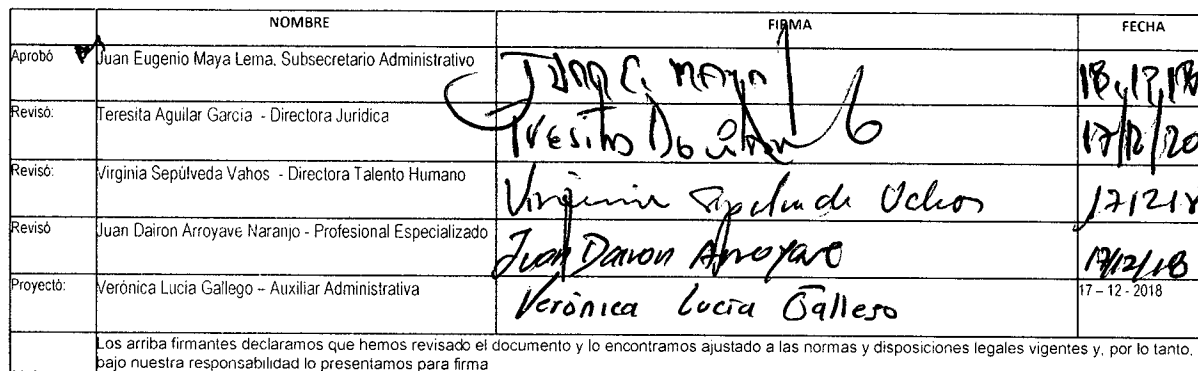 NOMBRE FIRMA FECHA
Aprobó Juan Eugenio Maya Lema. Subsecretario Administrativo Juan E. Maya 18,12,18
Revisó: Teresita Aguilar Garcia - Directora Jurídica Teresita Aguilar 17/12/20
Revisó: Virginia Sepúlveda Vahos - Directora Talento Humano Virginia Sepulveda Vahos 171218
Revisó Juan Dairon Arroyave Naranjo - Profesional Especializado Juan Dairon Arroyave 17/12/18
Proyectó: Verónica Lucia Gallego – Auxiliar Administrativa Verónica Lucía Gallego 17 – 12 - 2018
Los arriba firmantes declaramos que hemos revisado el documento y lo encontramos ajustado a las normas y disposiciones legales vigentes y, por lo tanto,
bajo nuestra responsabilidad lo presentamos para firma